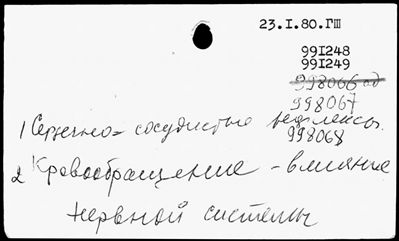 23.I.80.ГШ
991248
991249
998066 од
998067
1 Сердечно= сосудистые рефлексы.
998068
2 Кровообращение – влияние
нервной системы